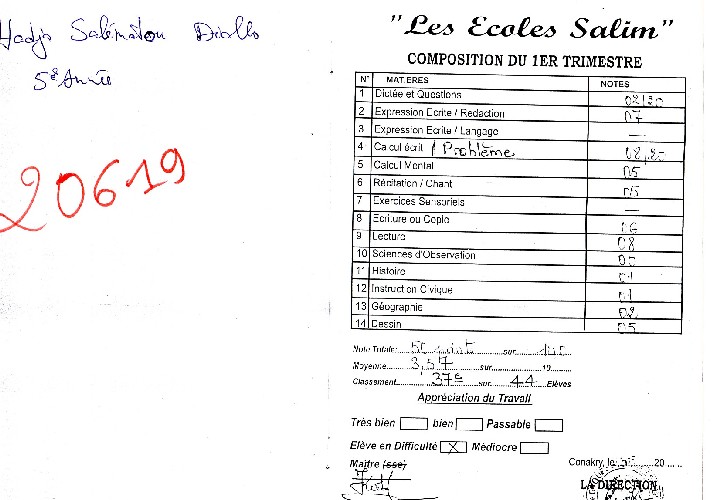 Hadja Salématou Diallo
5e Année
20619
"Les Ecoles Salim"
COMPOSITION DU 1ER TRIMESTRE
N° MATIERES NOTES
1 Dictée et Questions 02/20
2 Expression Ecrite / Rédaction 07
3 Expression Ecrite / Langage —
4 Calcul écrit / Problème 02,20
5 Calcul Mental 05
6 Récitation / Chant 05
7 Exercices Sensoriels —
8 Ecriture ou Copie 06
9 Lecture 08
10 Sciences d'Observation 00
11 Histoire 01
12 Instruction Civique 01
13 Géographie 02
14 Dessin 05
Note Totale: 50 point sur
Moyenne 3,57 sur 10
Classement 37e sur 44 Elèves
Appréciation du Travail
Très bien bien Passable
Elève en Difficulté X Médiocre
Maitre (sse) Conakry, le 20
LA DIRECTION